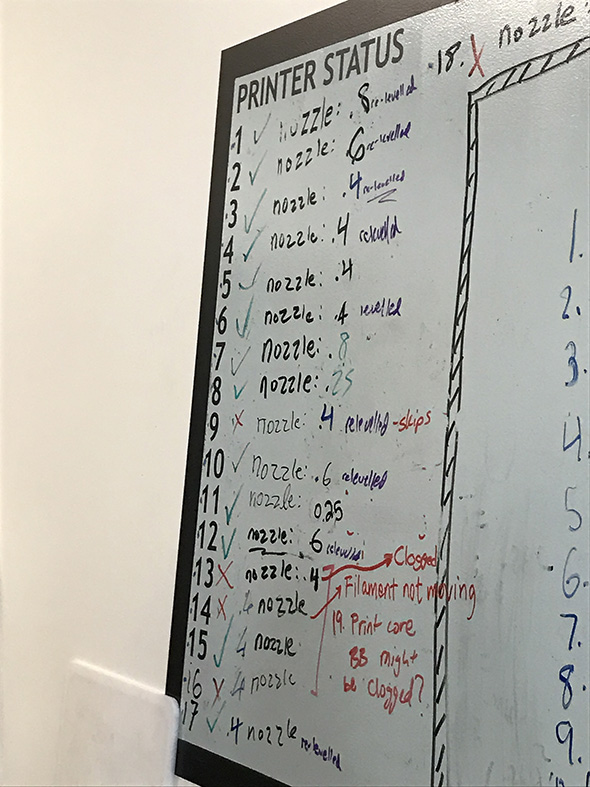 PRINTER STATUS
18. X nozzle:
1 ✓ nozzle: .8 re-levelled
2 ✓ nozzle: .6 re-levelled
3 ✓ nozzle: .4 re-levelled
4 ✓ nozzle: .4 relevelled
5 ✓ nozzle: .4
6 ✓ nozzle: .4 levelled
7 ✓ nozzle: .8
8 ✓ nozzle: .25
9 X nozzle: .4 relevelled -skips
10 ✓ nozzle: .6 relevelled
11 ✓ nozzle: 0.25
12 ✓ nozzle: .6 relevelled
13 X nozzle: .4 → Clogged
14 X .4 nozzle → Filament not moving
15 ✓ .4 nozzle
16 X .4 nozzle
17 ✓ .4 nozzle re-levelled
19. Print core
BB might
be clogged?
1.
2.
3.
4.
5
6.
7.
8.
9.